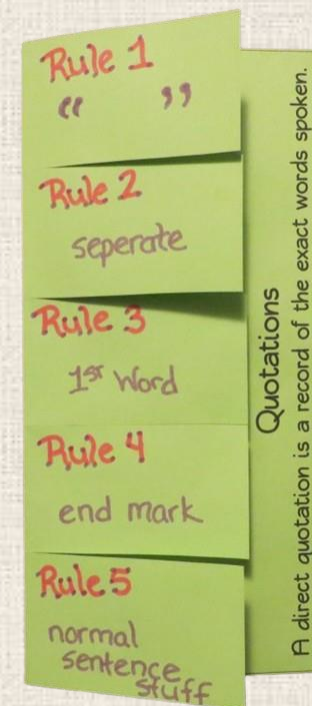 Rule 1
“ ”
Rule 2
seperate
Rule 3
1st Word
Rule 4
end mark
Rule 5
normal
sentence
stuff
Quotations
A direct quotation is a record of the exact words spoken.